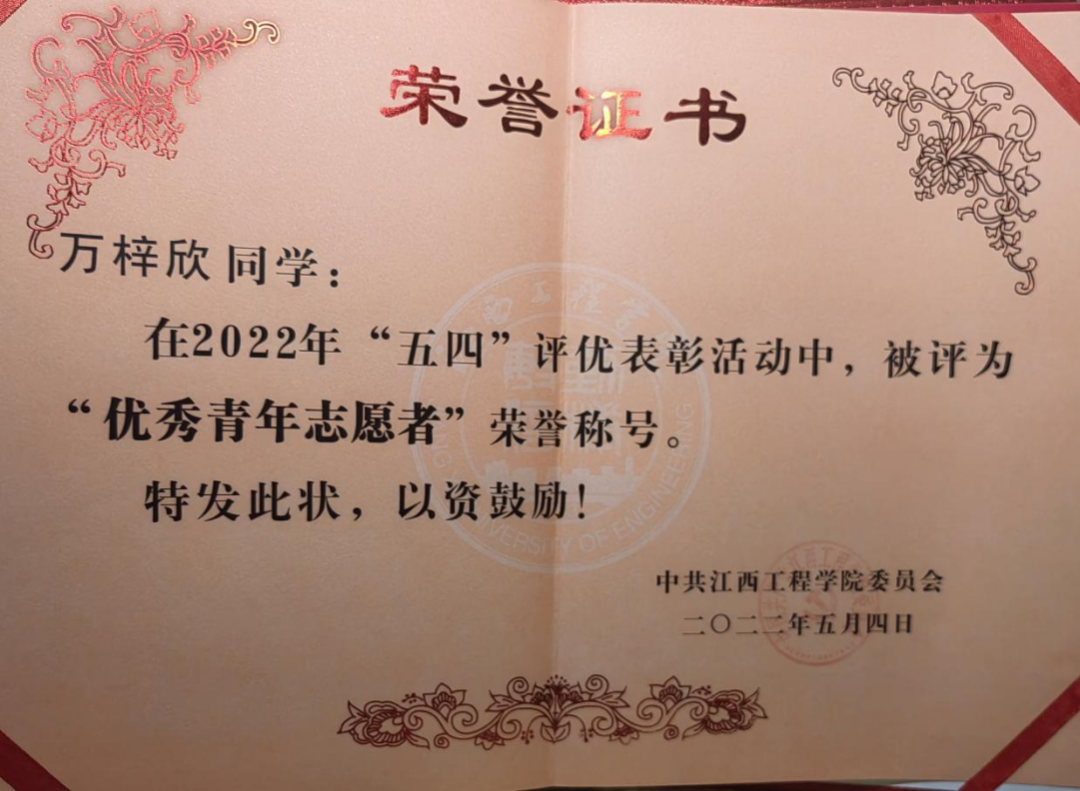 荣誉证书
万梓欣同学：
在2022年“五四”评优表彰活动中，被评为
“优秀青年志愿者”荣誉称号。
特发此状，以资鼓励！
中共江西工程学院委员会
二〇二二年五月四日
UNIVERSITY OF ENGINEERING